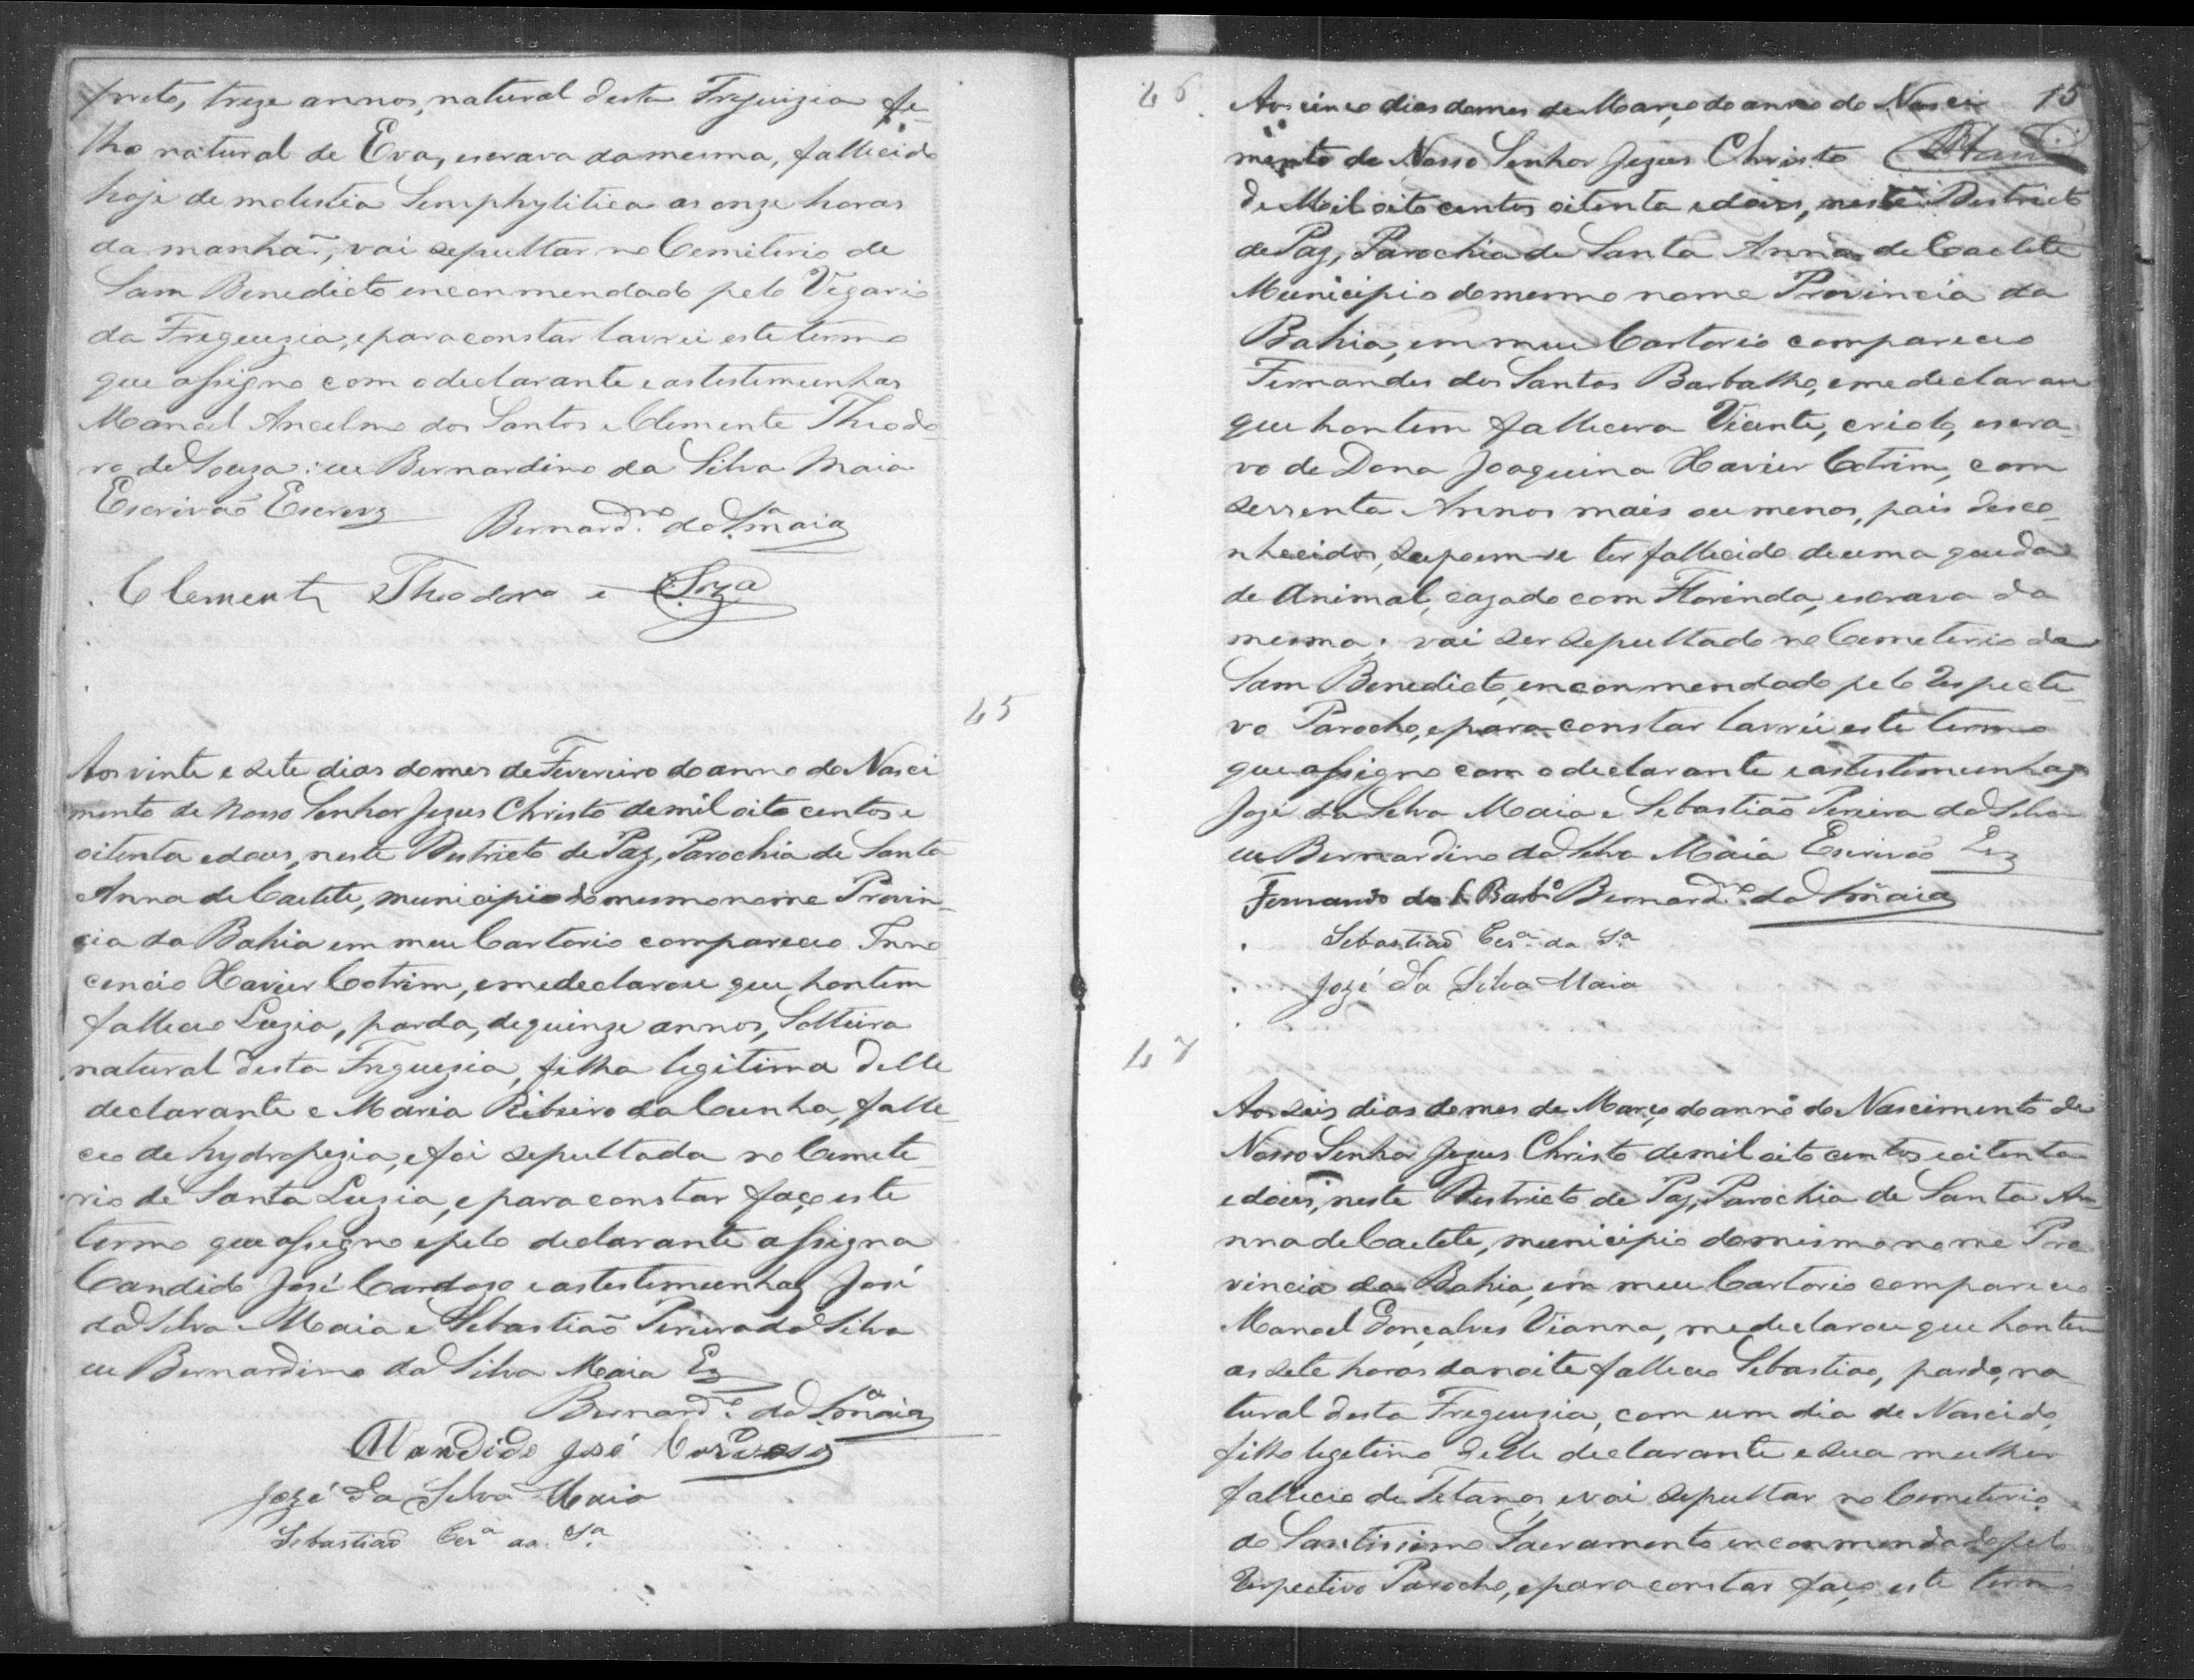 preto, treze annos, natural desta Freguizia fi-
lho natural de Eva, escrava da mesma, fallecido
hoje de molestia Semphylitica as onze horas
da manhãa, vai sepultar no Cemiterio de
Sam Benedicto enconmendado pelo Vegario
da Freguezia, e para constar lavrei este termo
que assigno com o declarante e as testemunhas
Manoel Ancelmo dos Santos e Clemente Theodo-
ro de Souza: eu Bernardino da Silva Maia
Escrivão Escrevy
Bernard.no da S.a Maia
Clemente Theodoro e Soza
45
Aos vinte e sete dias do mes de Fevereiro do anno do Nasci
mento de Nosso Senhor Jezus Christo de mil oito centos e
oitenta e dous, neste Destricto de Paz, Parochia de Santa
Anna de Caetete, municipio do mesmo nome Provin-
cia da Bahia em meu Cartorio compareceo Inno
cencio Xavier Cotrim, e me declarou que hontem
falleceo Luzia, parda, de quinze annos, Solteira
natural desta Freguezia, filha legitima delle
declarante e Maria Ribeiro da Cunha, falle-
ceo de hydropezia, e foi sepultada no Cemete-
rio de Santa Luzia, e para constar faço este
termo que assigno e pelo declarante assigna
Candido José Cardozo e as testemunhas José
da Silva Maia e Sebastião Pereira da Silva
eu Bernardino da Silva Maia Ez
Bernard.no da S.a Maia
Candido José Cardozo
Jozé da Silva Maia
Sebastião Per.a da S.a
46
15
Aos cinco dias do mes de Março do anno do Nasci
mento de Nosso Senhor Jezus Christo
de Mil oito centos oitenta e dois, neste Destricto
de Paz, Parochia de Santa Anna de Caetete
Municipio do mesmo nome Provincia da
Bahia, em meu Cartorio compareceo
Fernandes dos Santos Barbalho, e me declarou
que hontem fallecera Vicente, criolo, escra-
vo de Dona Joaquina Xavier Cotrim, com
serrenta Annos mais ou menos, pais desco-
nhecidos, supoem-se ter fallecido de uma queda
de Animal, cazado com Florinda, escrava da
mesma; vai ser sepultado no Cemeterio de
Sam Benedicto, enconmendado pelo Respecti-
vo Parocho, e para constar lavrei este termo
que assigno com o declarante e as testemunhas
Jozé da Silva Maia e Sebastião Pereira da Silva
eu Bernardino da Silva Maia Escrivão Ez
Fernando dos S. Barb.o Bernard.no da S.a Maia
Sebastião Per.a da S.a
Jozé da Silva Maia
47
Aos seis dias do mes de Março do anno do Nascimento de
Nosso Senhor Jezus Christo de mil oito centos e oitenta
e dous, neste Destricto de Paz, Parochia de Santa An-
nna de Caetete, municipio do mesmo nome Pro
vincia da Bahia, em meu Cartorio compareceo
Manoel Gonçalves Vianna, me declarou que hontem
as sete horas da noite falleceo Sebastiao, pardo, na
tural desta Freguezia, com um dia de Nascido,
filho legetimo delle declarante e sua mulher
falleceo de Tetanos, e vai sepultar no Cemeterio
do Santissimo Sacramento enconmendado pelo
Respectivo Parocho, e para constar faço este termo